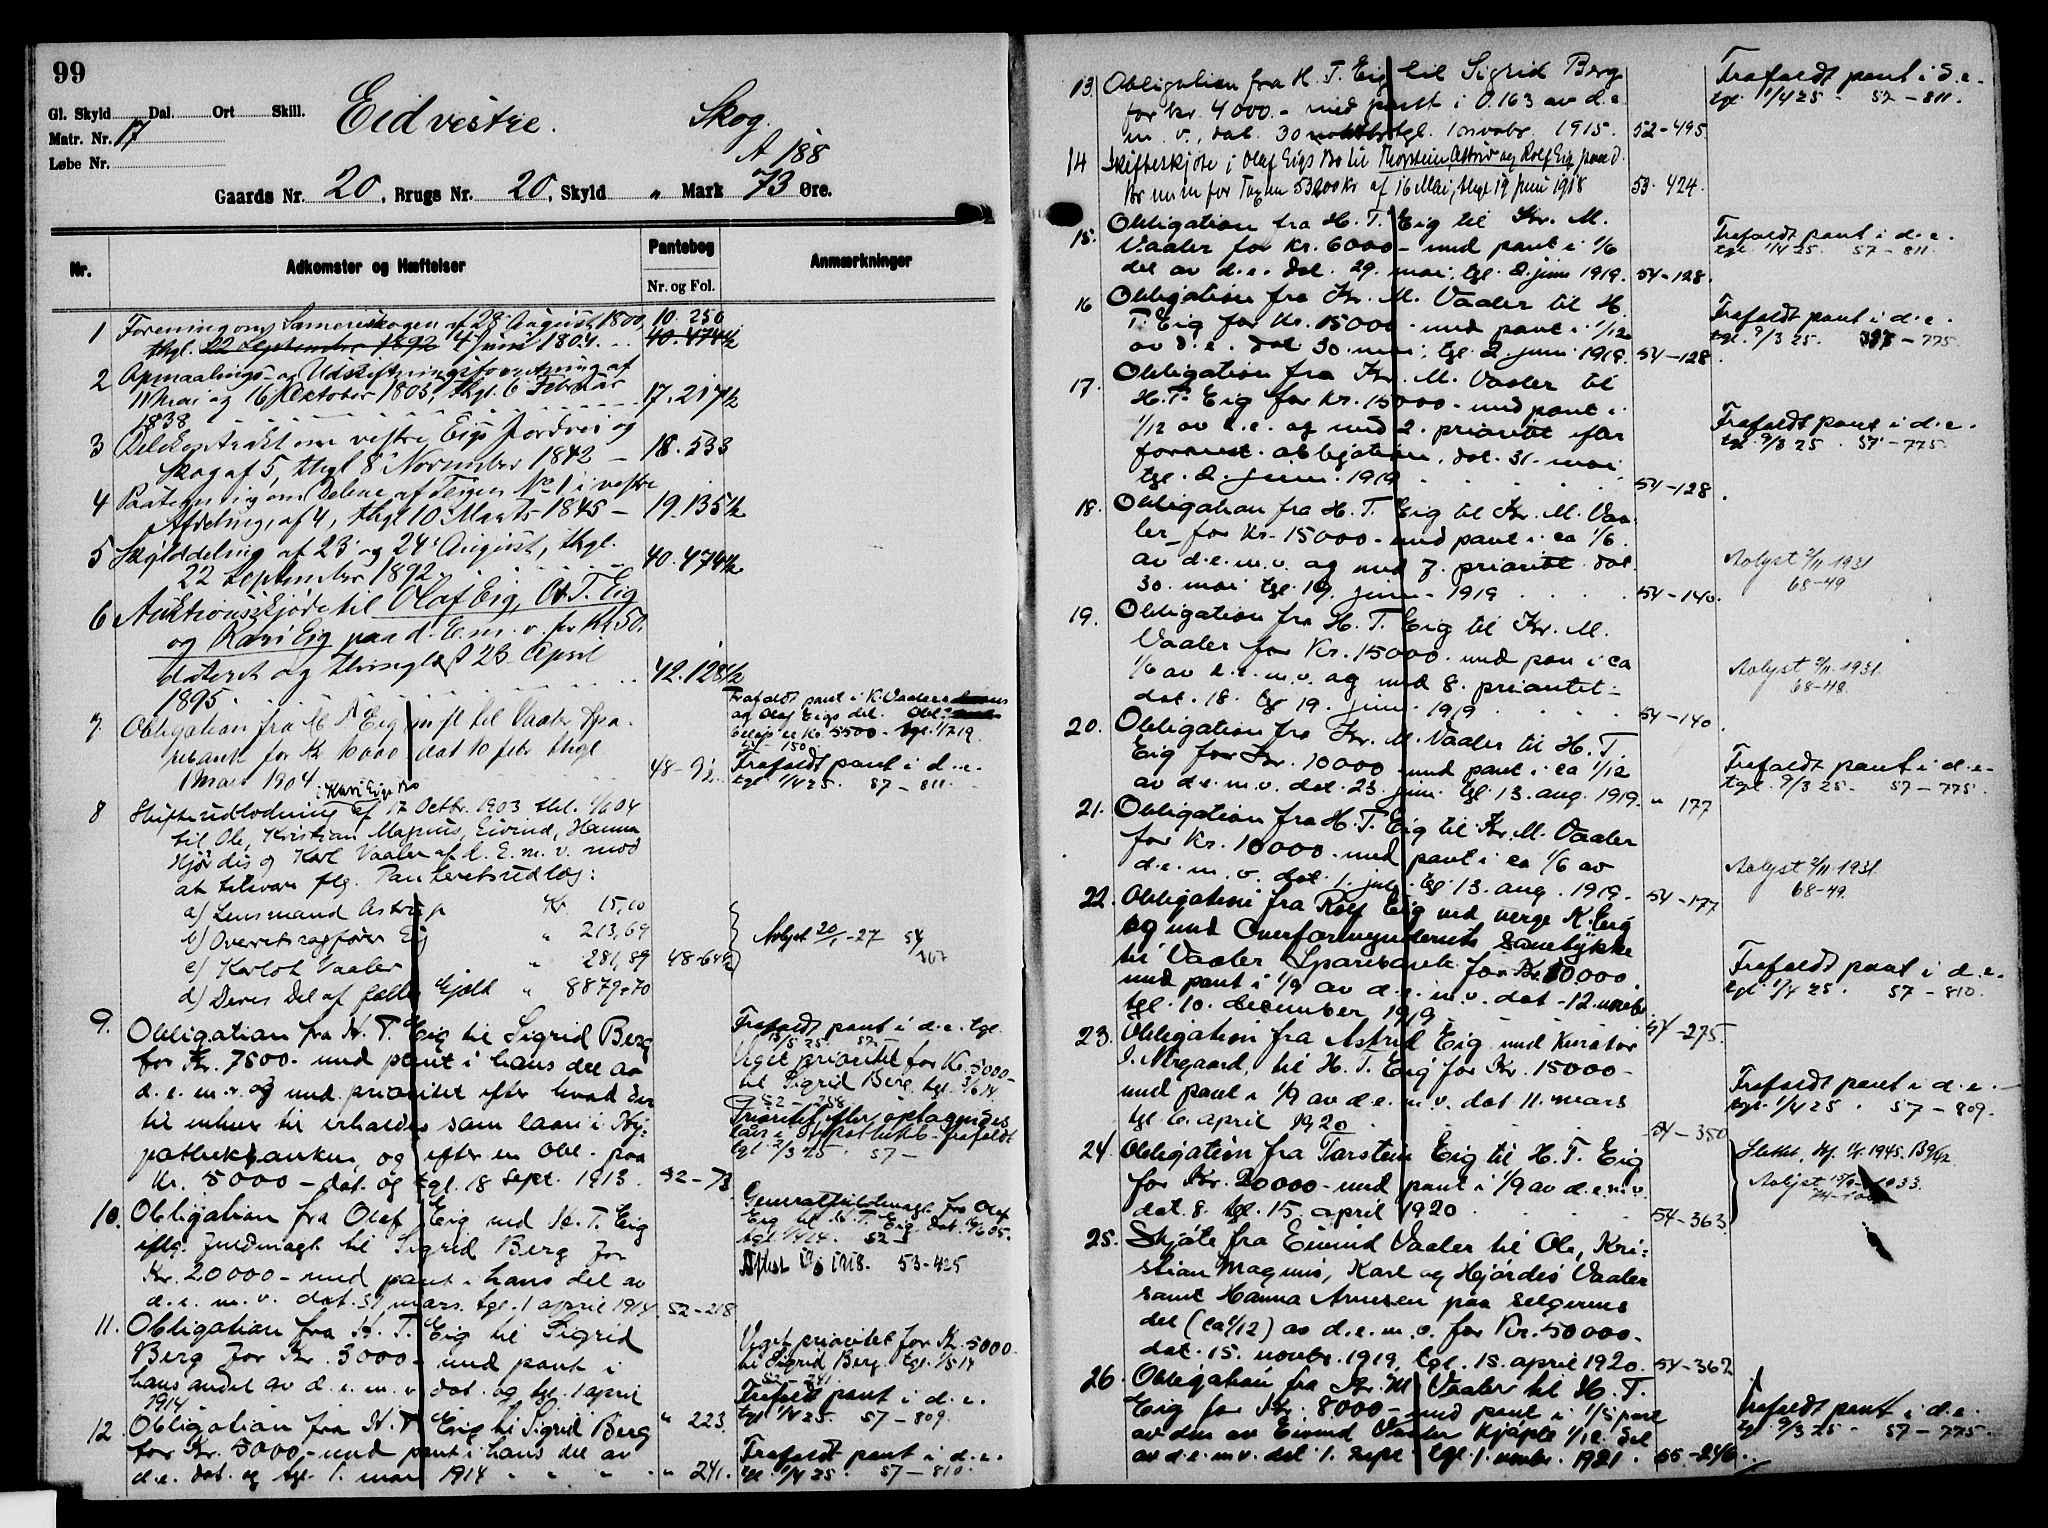 99
Gl. Skyld Dal. Ort Skill.
Matr. Nr. 17
Løbe Nr.
Eid vestre.
Skog.
A 188
Gaards Nr. 20, Brugs Nr. 20, Skyld " Mark 73 Øre.
Nr.
Adkomster og Hæftelser
Pantebog
Nr. og Fol.
Anmærkninger
1 Forening om Sameieskogen af 28 August 1800, 10. 250
thgl. 22 September 1892 4 Juni 1804. 40. 474½
2 Opmaalings- og Udskiftningsforretning af
11 Mai og 16 Oktober 1803, thgl. 6 Februar
1838 17. 217½
3 Delekontrakt om vestre Eigs Jordvei og
Skog af 5, thgl 8 November 1842 18. 533
4 Paategning om Delene af Teigen No 1 i vestre
Afdeling, af 4, thgl 10 Marts 1845 19. 135½
5 Skylddeling af 23 og 24 August, thgl.
22 September 1892. 40. 474½
6 Auktionsskjøde til Olaf Eig, O. T. Eig
og Kari Eig paa d. E. m. v. for Kr 50.
dateret og thinglæst 23 April
1895. 42. 128½
7. Obligation fra H. T. Eig m fl til Vaaler Spa-
rebank for Kr 10000 dat 10 febr. thgl.
1 Mars 1904 48-92
Frafaldt pant i K. Vaalers
og Olaf Eigs del. Obl.
beløp er Kr. 5500- tgl. 1/7 19.
Frafaldt pant i d. e.
tgl. 1/4 25. 57-811.
i Kari Eigs Bo
8 Skifteudlodning af 17 Octbr. 1903 thl. 1/6 04
til Ole, Kristian Magnus, Eivind, Hanna
Hjørdis og Karl Vaaler af d. E. m. v. mod
at tilsvare flg. Panteretsudlæg:
a) Lensmand Astrup Kr 15,00
b) Overretssagfører Eig " 213,69
c) Karlot Vaaler " 281,89 48-649
d) Deres Del af fælles Gjæld " 8879,70
Avlyst 20/1-27 54
9. Obligation fra H. T. Eig til Sigrid Berg
for Kr. 7500- med pant i hans del av
d. e. m. v. og med prioritet efter hvad der
til enhver tid erholdes som laan i Hy-
pothekbanken, og efter en obl. paa
Kr. 5000- dat. og tgl. 18 sept. 1913. 52-73
Frafaldt pant i d. e. tgl.
Veget prioritet for Kr. 5000-
til Sigrid Berg tgl. 3/6 14
52-258.
Prioritet efter optagendes
laan i Hypothekb. frafaldt
tgl. 2/3 25. 57-
10. Obligation fra Olaf Eig ved H. T. Eig
iflg. fuldmagt til Sigrid Berg for
Kr. 20000- med pant i hans del av
d. e. m. v. dat. 31 mars. tgl. 1 april 1914. 52-218
Generalfuldmagt fra Olaf
Eig til H. T. Eig dat. 16/6 05.
tgl. 1/4 14. 52-
Aflyst 19/6 1918. 53-425
11. Obligation fra H. T. Eig til Sigrid
Berg for Kr. 3000- med pant i
hans andel av d. e. m. v. dat. og tgl. 1 april
1914 " 223.
Veget prioritet for Kr. 5000-
til Sigrid Berg. tgl. 1/5 14
52-241.
Frafaldt pant i d. e.
tgl. 1/4 25. 57-809.
12. Obligation fra H. T. Eig til Sigrid Berg
for Kr. 5000- med pant i hans del av
d. e. dat. og tgl. 1. mai 1914 " 241.
Frafaldt pant i d. e.
tgl. 1/4 25. 57-810.
13. Obligation fra H. T. Eig til Sigrid Berg
for kr. 4000.- med pant i 0.163 av d. e.
m. v., dat. 30 tgl. 1 novbr. 1915. 52-495
Frafaldt pant i d. e.
tgl. 1/4 25. 57-811.
14 Skifteskjøte i Olaf Eigs Bo til Thorstein Astrid og Rolf Eig paa d.
Br m. m for Taxten 53200 Kr af 16 Mai, thgl 19 Juni 1918 53. 424.
15. Obligation fra H. T. Eig til Kr. M.
Vaaler for Kr. 6000- med pant i 1/6
del av d. e. dat. 29. mai; tgl. 2. juni 1919. 54-128.
Frafaldt pant i d. e.
tgl. 1/4 25. 57-811.
16 Obligation fra Kr. M. Vaaler til H.
T. Eig for Kr. 15000- med pant i 1/12
av d. e. dat 30. mai; tgl. 2. juni 1919. 54-128.
Frafaldt pant i d. e.
tgl. 9/3 25. 57-775.
17. Obligation fra Kr. M. Vaaler til
H. T. Eig for Kr. 15000- med pant i
1/12 av d. e. og med 2. prioritet efter
forannt. obligation, dat. 31. mai
tgl. 2. juni. 1919 54-128.
Frafaldt pant i d. e.
tgl. 9/3 25. 57-775.
18. Obligation fra H. T. Eig til Kr. M. Vaa-
ler for Kr. 15000- med pant i ca 1/6.
av d. e. m. v. og med 7. prioritet. dat.
30. mai tgl. 19. juni. 1919 54-140.
Avlyst 2/11 1931
68-49
19. Obligation fra H. T. Eig til Kr. M.
Vaaler for Kr. 15000. med pan i ca
1/6 av d. e. m. v. og med 8. prioritet-
dat. 18. tgl 19. juni. 1919 54-140.
Avlyst 2/11 1931.
68-48.
20. Obligation fra Kr. M. Vaaler til H. T.
Eig for Kr. 10000- med pant i ca 1/12
av d. e. m. v. dat. 23. juni. tgl 13. aug. 1919. " 177
Frafaldt pant i d. e.
tgl. 9/3 25. 57-775.
21. Obligation fra H. T. Eig til Kr. M. Vaaler
for Kr. 10000- med pant i ca 1/6 av
d. e. m. v. dat. 1. juli. tgl. 13. aug. 1919. 54-177
Avlyst 2/11 1931.
68-49.
22. Obligation fra Rolf Eig ved verge K. Eig
og med Overformynderiets samtykke
til Vaaler Sparebank for Kr. 10000.
med pant i 1/9 av d. e. m. v. dat. 12. novbr.
tgl. 10. december 1919 54-275.
Frafaldt pant i d. e.
tgl. 1/4 25. 57-810.
23. Obligation fra Astrid Eig med kurator
I. Nergaard, til H. T. Eig for Kr. 15000-
med pant i 1/9 av d. e. m. v. dat 11. mars
tgl 6. april 1920 54-350
Frafaldt pant i d. e.
tgl. 1/4 25. 57-809.
24. Obligation fra Torstein Eig til H. T. Eig
for Kr. 20000- med pant i 1/9 av d. e. m. v.
dat. 8. tgl. 15. april 1920 54-363.
1945. B 9/62
Avlyst 1933.
25. Skjøte fra Eivind Vaaler til Ole, Kri-
stian Magnus, Karl og Hjørdis Vaaler
samt Hanna Arnesen paa selgerens
del (ca 1/12) av d. e. m. v. for Kr. 50000-
dat. 15. novbr. 1919, tgl. 15. april 1920. 54-362
26. Obligation fra Kr. M. Vaaler til H. T.
Eig for Kr. 8000- med pant i 1/5 part
av den av Eivind Vaaler kjøpte 1/12 del
av d. e. m v. dat 1. sept tgl. 1. novbr. 1921. 55-246.
Frafaldt pant i d. e.
tgl. 9/3 25. 57-775.